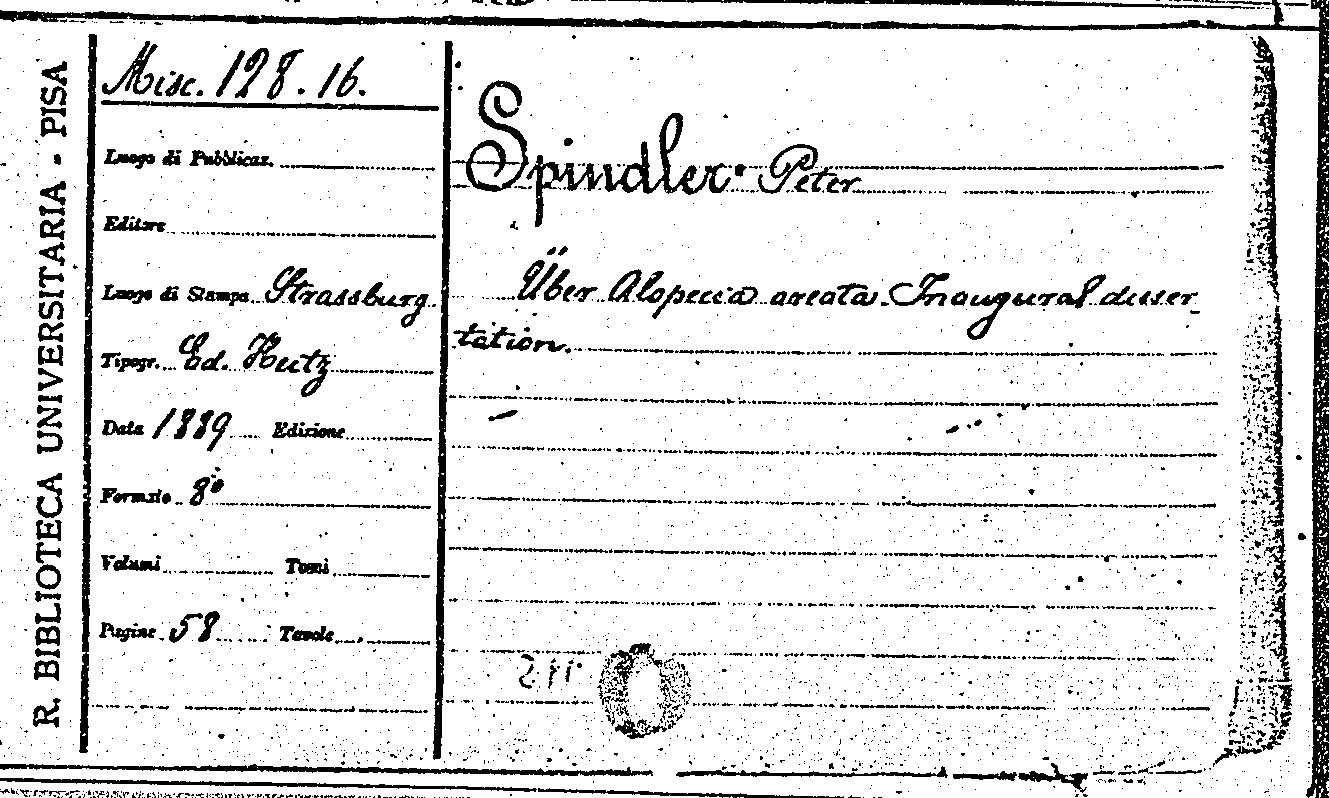 R. BIBLIOTECA UNIVERSITARIA - PISA
Misc. 128. 16.
Luogo di Pubblicaz.
Editore
Luogo di Stampa Strassburg
Tipogr. Ed. Hutz
Data 1889 Edizione
Formato 8°
Volumi Tomi
Pagine 58 Tavole
Spindler Peter
Über Alopecia areata. Inaugural disser
tation.